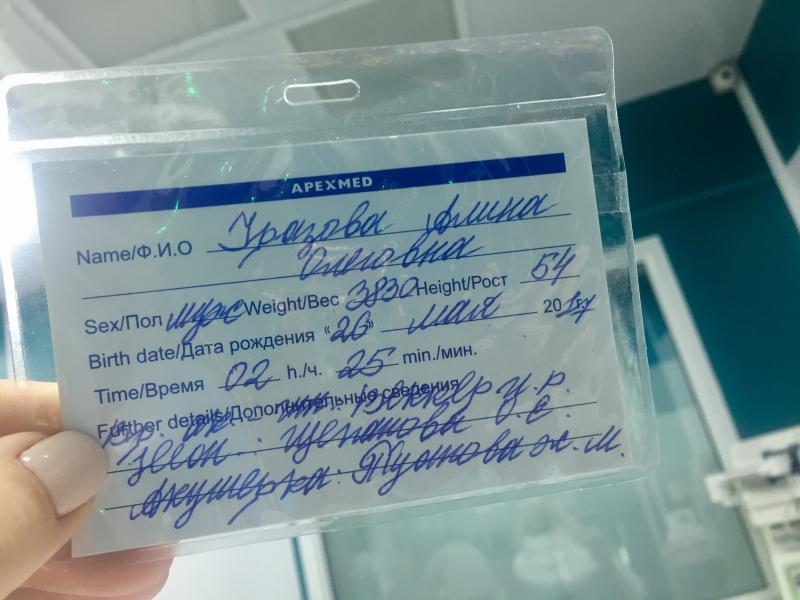 APEXMED
Name/Ф.И.О Уразова Алина
Олеговна
Sex/Пол муж Weight/Вес 3830 Height/Рост 54
Birth date/Дата рождения «26» мая 2017
Time/Время 02 h./ч. 25 min./мин.
Further details/Дополнительные сведения
Вр. ак.- Веккер И.Р.
Щепанова О.С.
Акушерка: М.